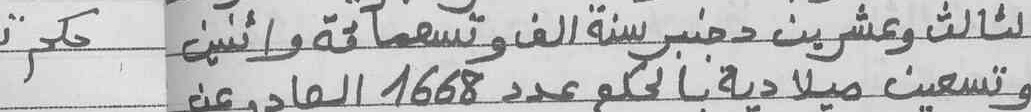 لثالث وعشرين دجنبر سنة الف وتسعمائة واثنين حكم
و تسعين ميلادية بالحكم عدد 1668 الصادر عن